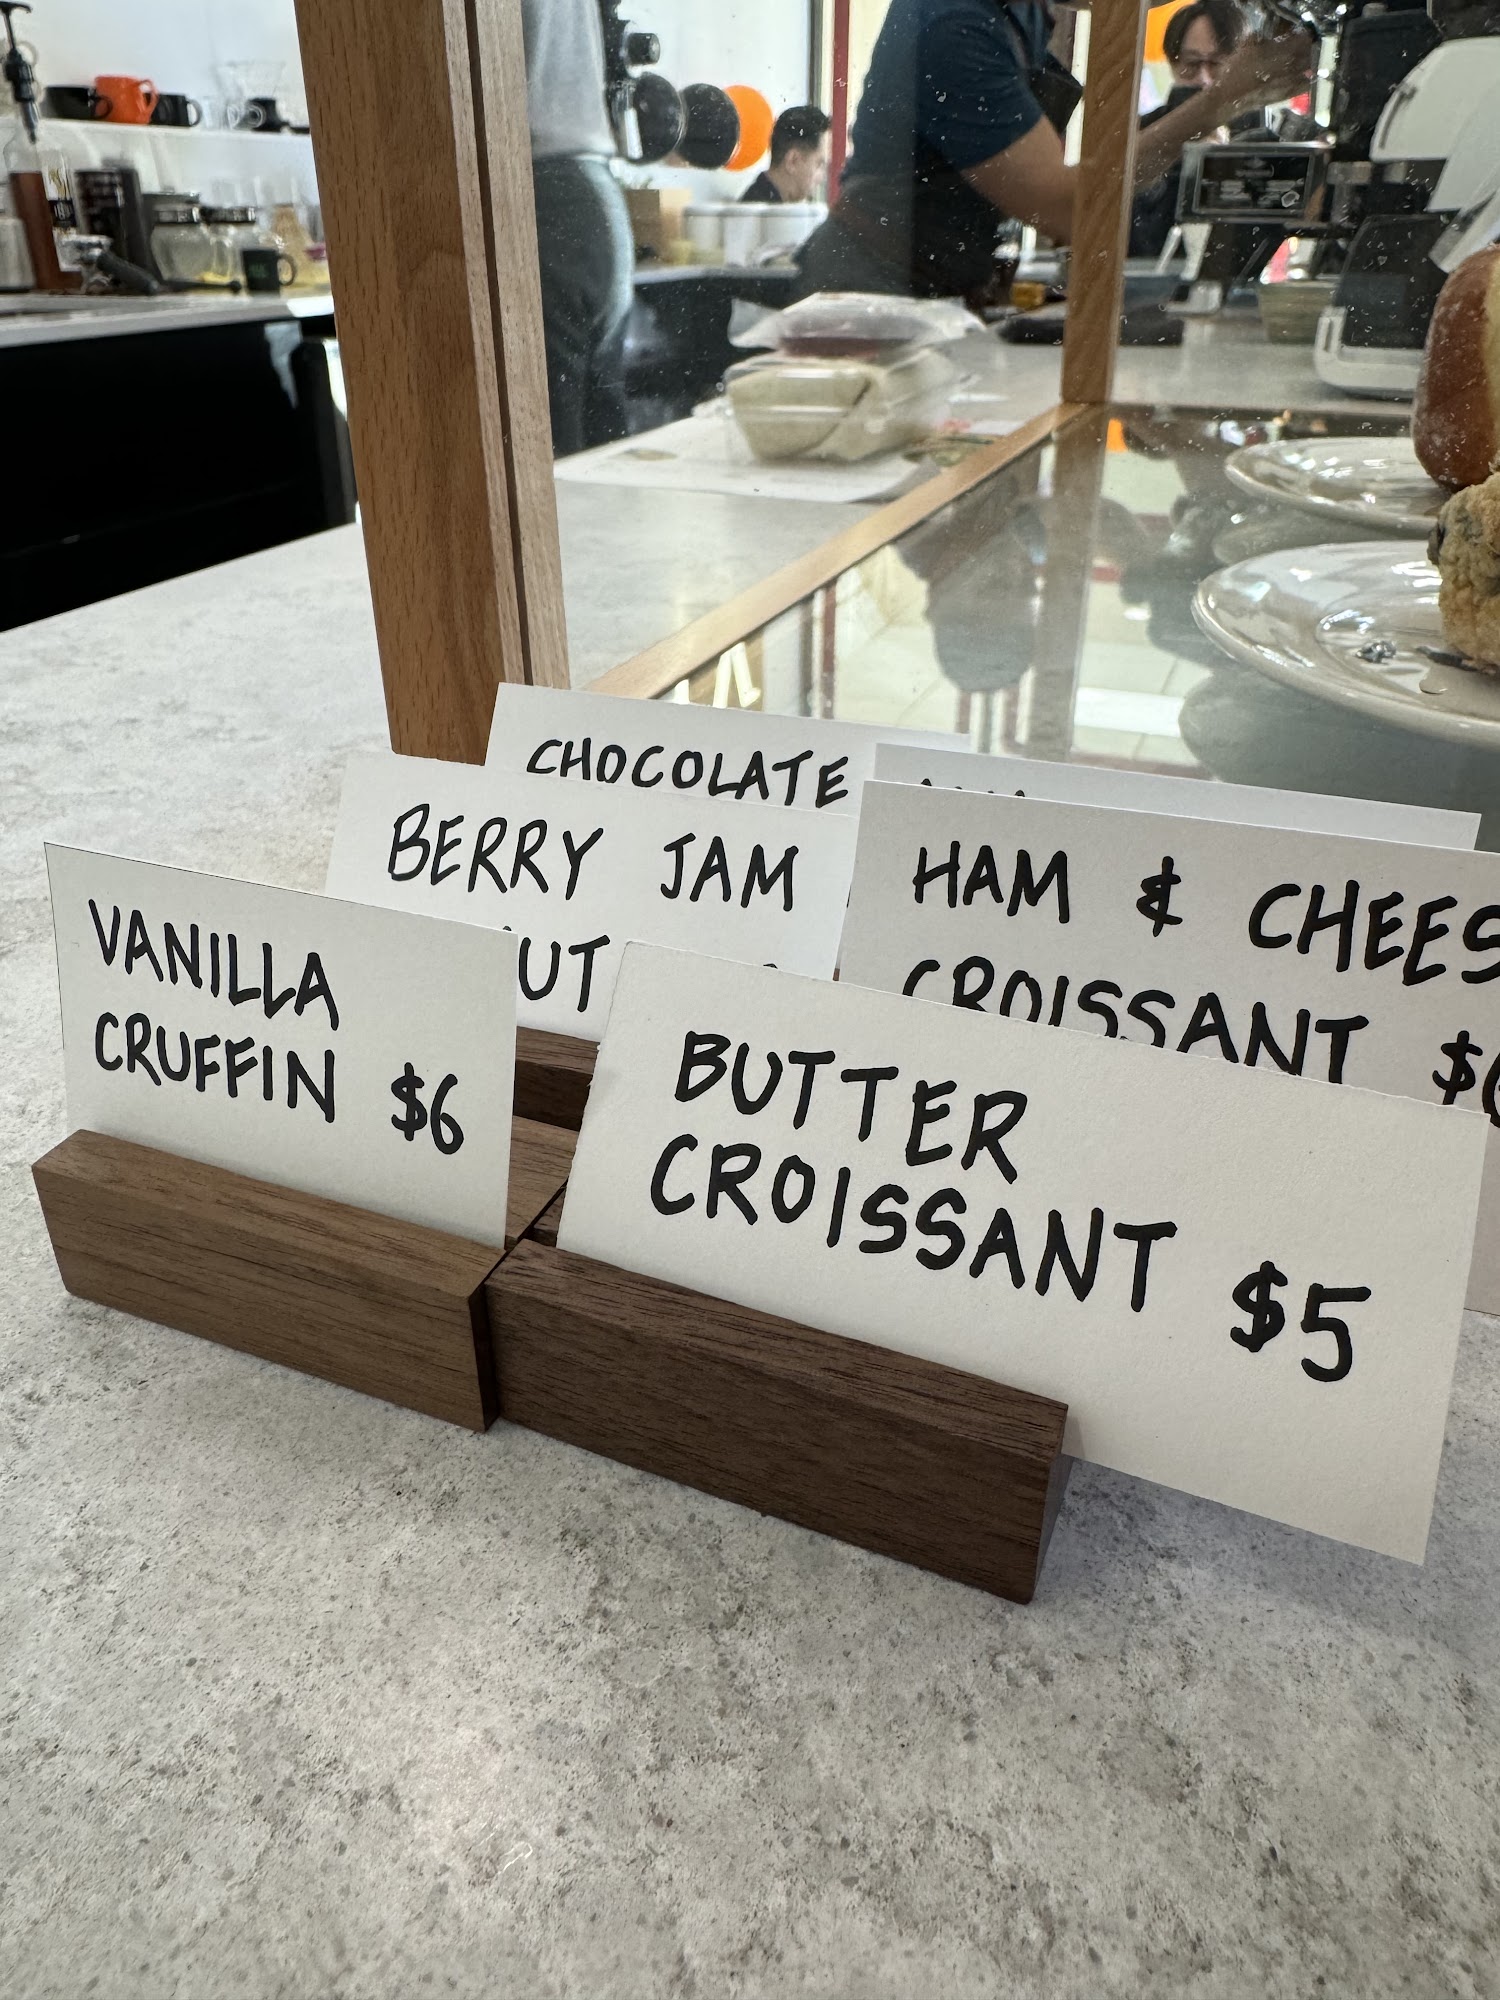 CHOCOLATE
BERRY JAM
HAM & CHEES
CROISSANT
VANILLA
CRUFFIN $6
BUTTER
CROISSANT $5